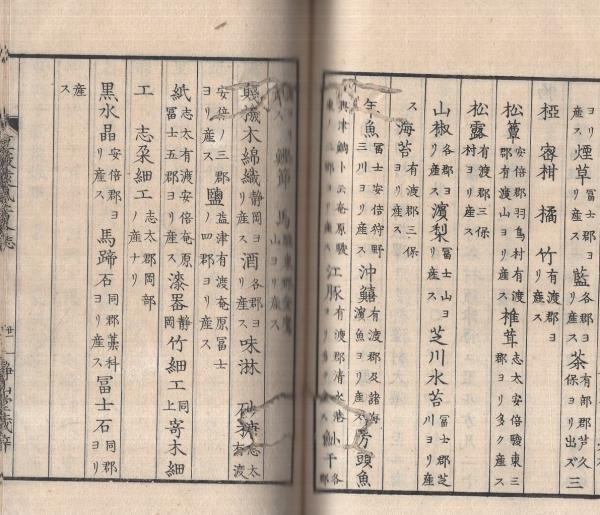 ヨリ産ス 煙草 各郡ヨリ産ス 藍 各郡ヨリ産ス 茶 有部郡芦久保ヨリ出ヅ 三
椏 密柑 橘 竹 有渡郡ヨリ産ス
松蕈 安倍郡羽鳥村有渡郡有渡山ヨリ産ス 椎茸 志太安倍駿東三郡ヨリ多ク産ス
松露 有渡郡三保村ヨリ産ス
山椒 各郡ヨリ産ス 濱梨 冨士山ヨリ産ス 芝川水苔 冨士郡芝川ヨリ産
ス 海苔 有渡郡三保ヨリ産ス
年魚 冨士安倍狩野三川ヨリ産ス 沖鱚 有渡郡及諸海濱漁ヨリ産ス 方頭魚
興津鯛ト云庵原駿 江豚 有渡郡清水港ヨリ産ス 小干 各郡
鰹節 馬
木綿織 静岡ヨリ産ス 酒 各郡ヨリ産ス 味淋 砂糖 志太有渡
安倍ノ三郡ヨリ産ス 鹽 益津有渡庵原冨士ノ四郡ヨリ産ス
紙 志太有渡安倍庵原冨士五郡ヨリ産ス 漆器 静岡 竹細工 同上 寄木細
工 志太細工 志太郡岡部ノ産ナリ
黒水晶 安倍郡ヨリ産ス 馬蹄石 同郡藁科ヨリ産ス 冨士石 同郡ヨリ
産ス